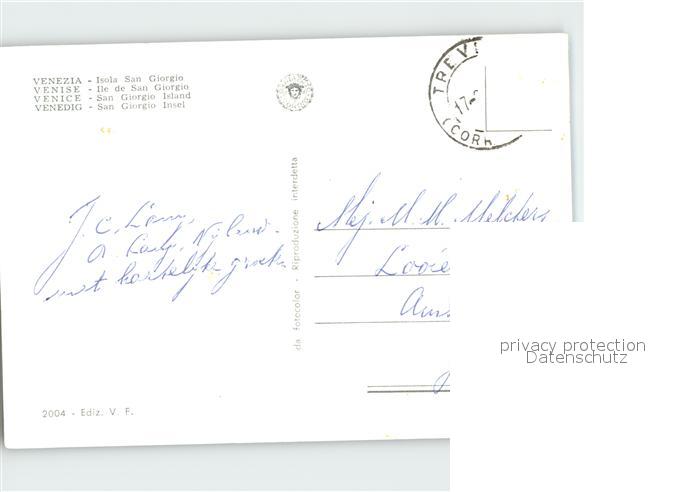 VENEZIA - Isola San Giorgio
VENISE - Ile de San Giorgio
VENICE - San Giorgio Island
VENEDIG - San Giorgio Insel
TREVI
17-
(CORR
J. C.
met hartelijke groeten
da fotecolor - Riproduzione interdetta
Mej. M. M. Melchers
Looie
Am
privacy protection
Datenschutz
2004 - Ediz. V. F.